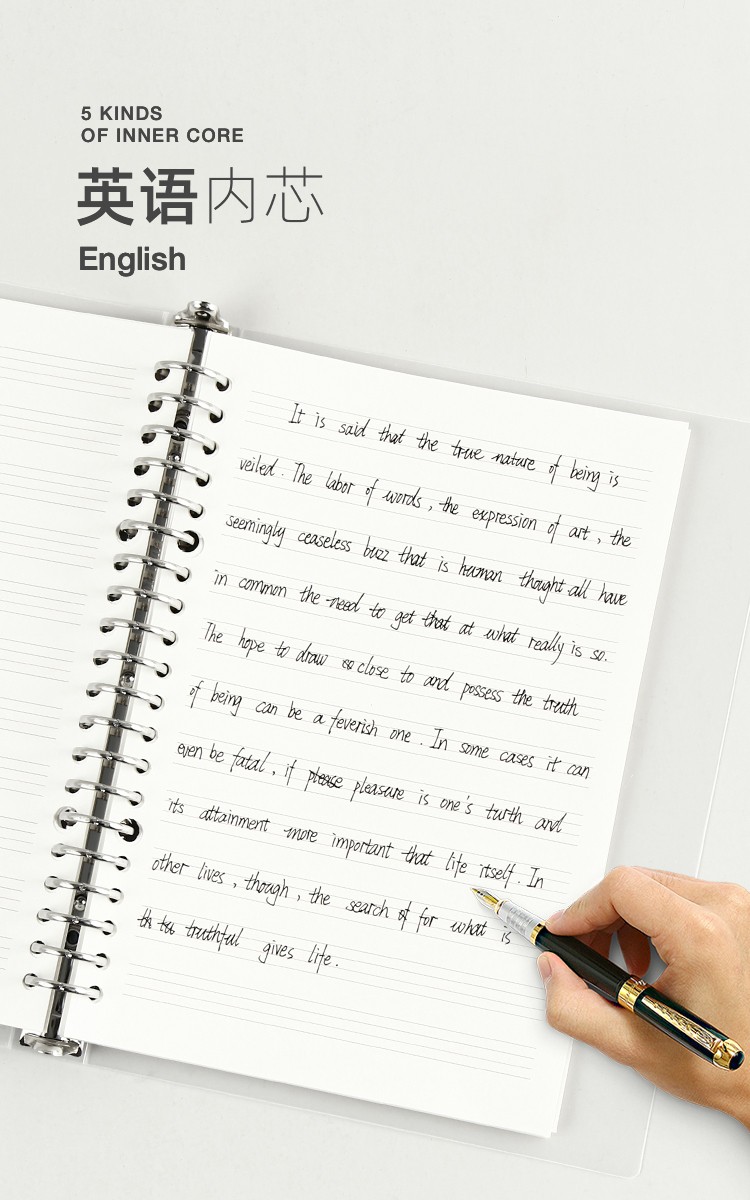 5 KINDS
OF INNER CORE
英语内芯
English
It is said that the true nature of being is
veiled. The labor of words, the expression of art, the
seemingly ceaseless buzz that is human thought all have
in common the need to get that at what really is so.
The hope to draw close to and possess the truth
of being can be a feverish one. In some cases it can
even be fatal, if please pleasure is one's turth and
its attainment more important that life itself. In
other lives, though, the search of for what is
truthful gives life.